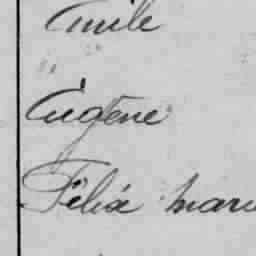 Emile
"
Eugène
Félix Marie